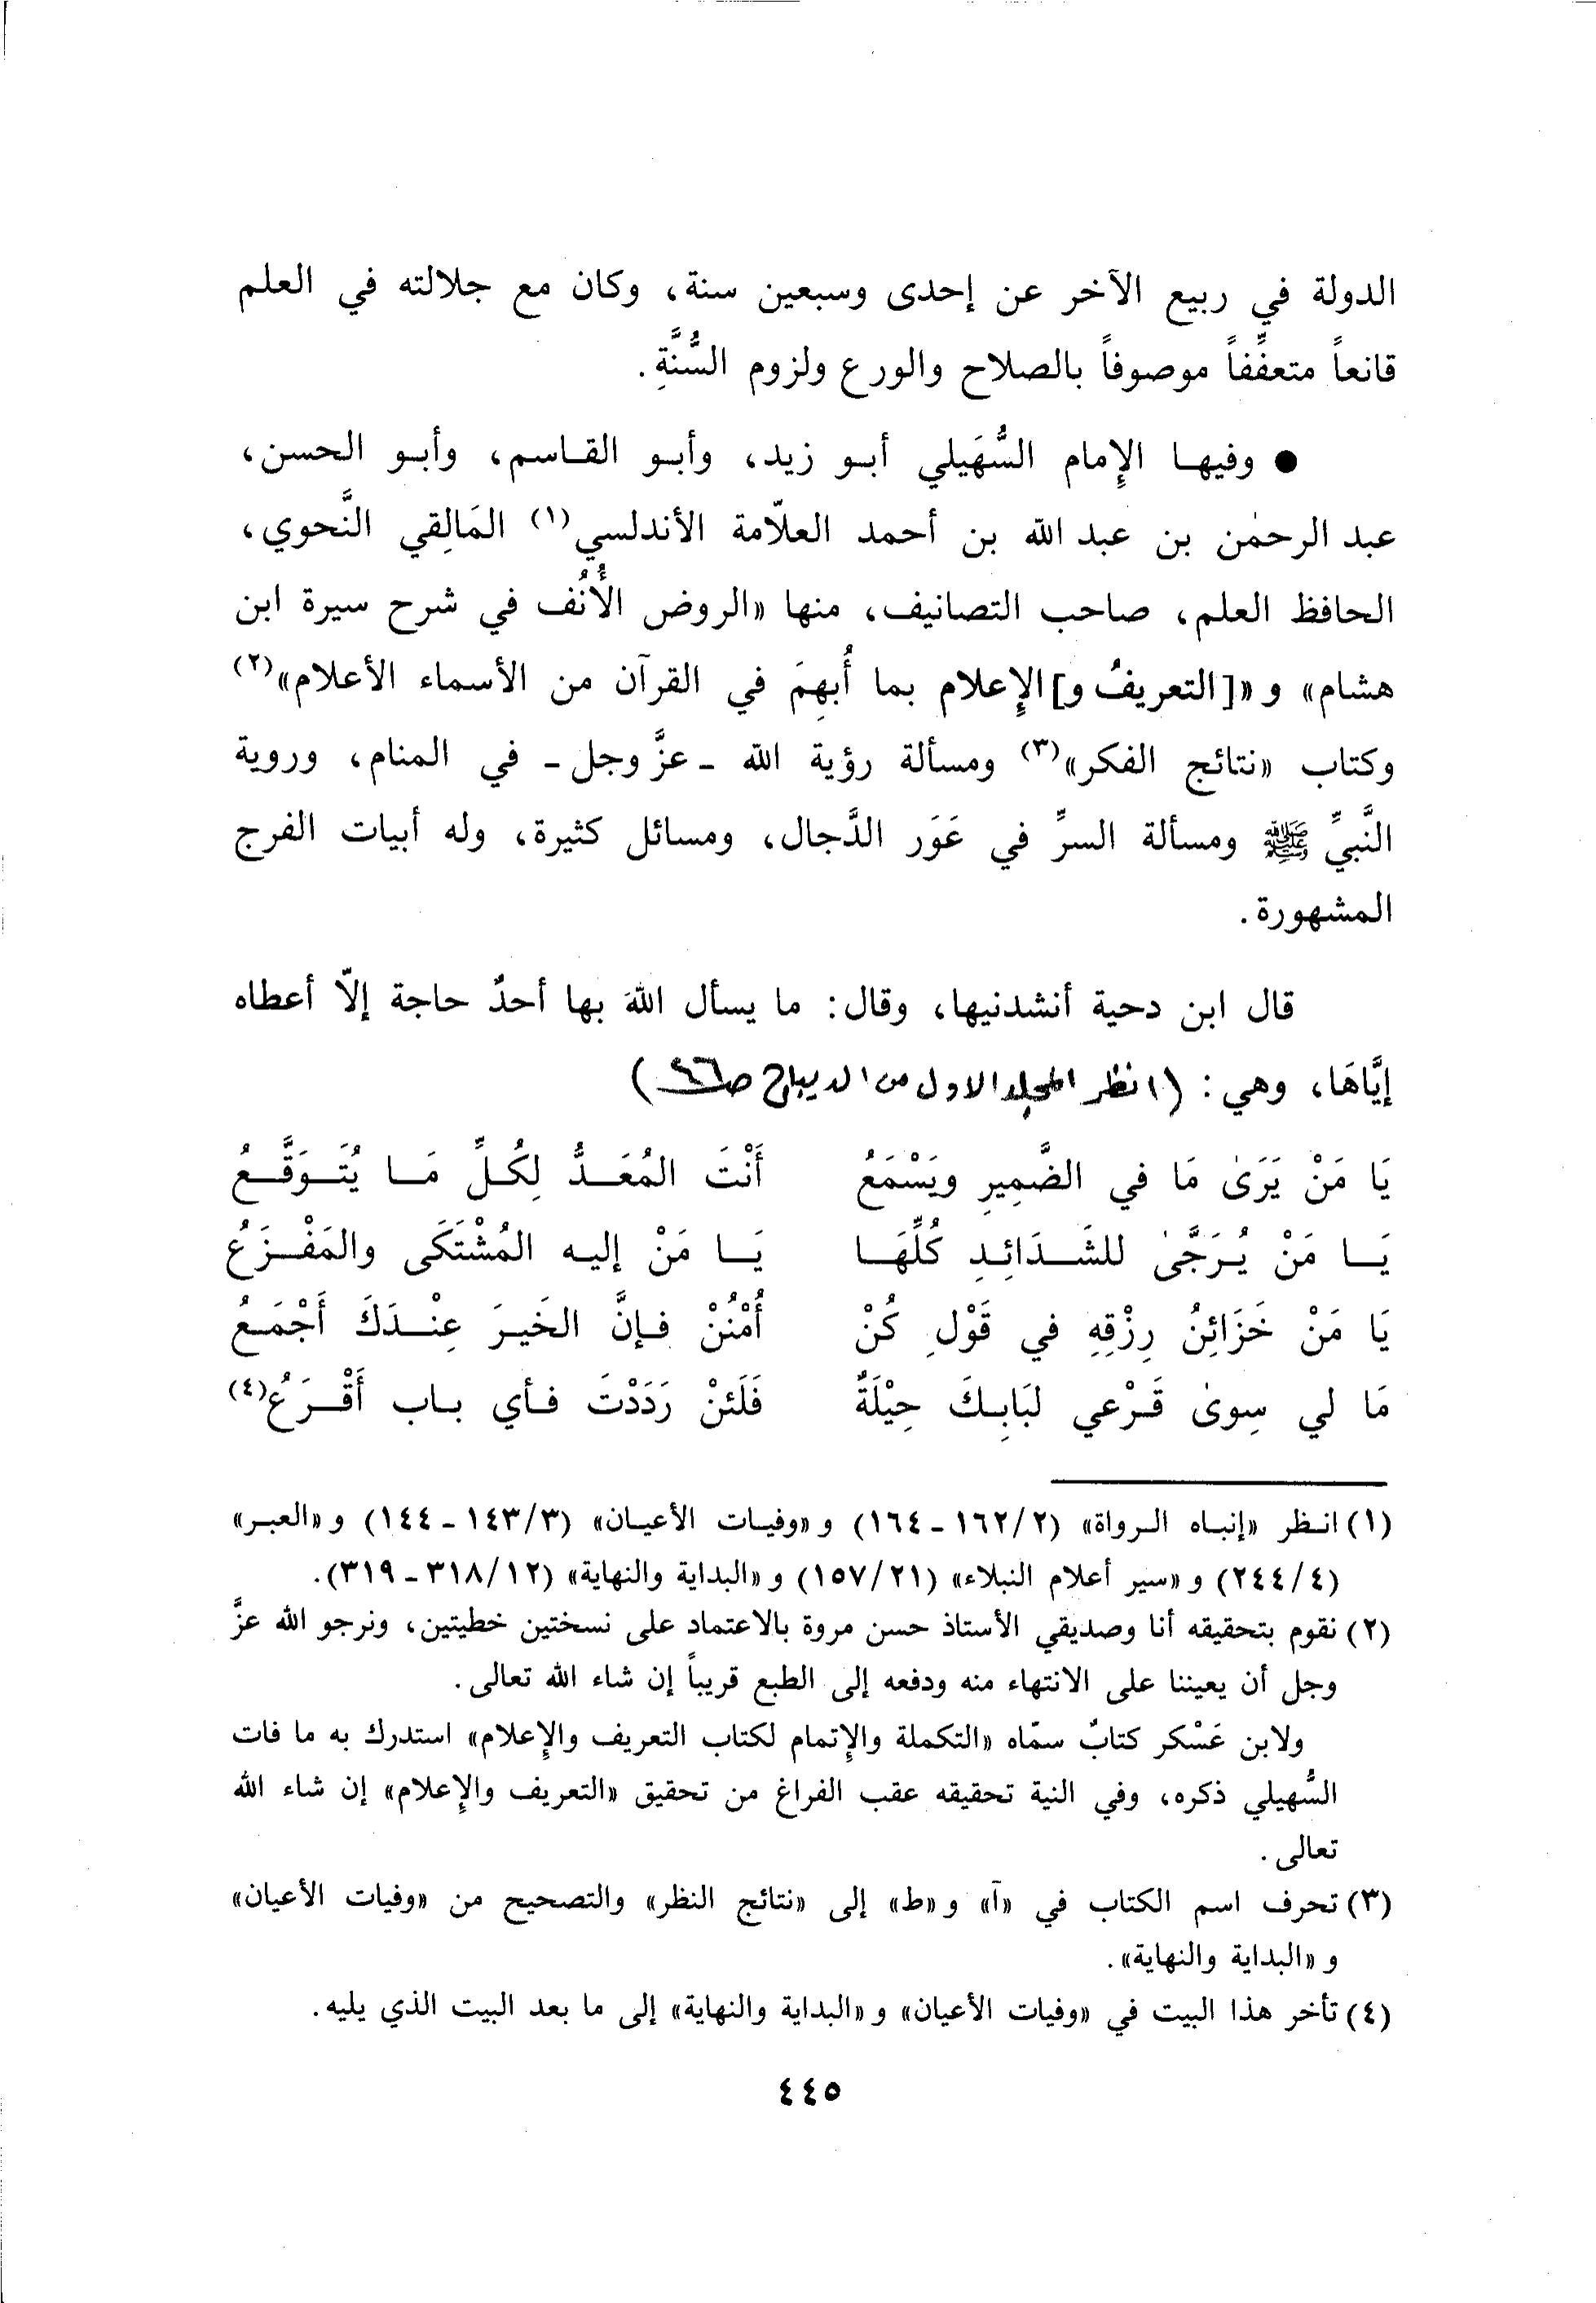 الدولة في ربيع الآخر عن إحدى وسبعين سنة، وكان مع جلالته في العلم
قانعاً متعفِّفاً موصوفاً بالصلاح والورع ولزوم السُّنَّةِ.
● وفيها الإِمام السُّهَيلي أبو زيد، وأبو القاسم، وأبو الحسن،
عبد الرحمٰن بن عبد الله بن أحمد العلّامة الأندلسي(١) المَالِقي النَّحوي،
الحافظ العلم، صاحب التصانيف، منها «الروض الأُنُف في شرح سيرة ابن
هشام» و «[التعريفُ و]الإِعلام بما أُبهِمَ في القرآن من الأسماء الأعلام»(٢)
وكتاب «نتائج الفكر»(٣) ومسألة رؤية الله - عزَّ وجل - في المنام، وروية
النَّبيِّ ﷺ ومسألة السرِّ في عَوَر الدَّجال، ومسائل كثيرة، وله أبيات الفرج
المشهورة.
قال ابن دحية أنشدنيها، وقال: ما يسأل اللهَ بها أحدٌ حاجة إلّا أعطاه
إيَّاهَا، وهي: (انظر المجلد الاول من الديباج ص)
يَا مَنْ يَرَىٰ مَا في الضَّمِيرِ ويَسْمَعُ أَنْتَ المُعَدُّ لِكُلِّ مَا يُتَوَقَّعُ
يَا مَنْ يُرَجَّىٰ للشَدَائِدِ كُلِّهَا يَا مَنْ إليه المُشْتَكَى والمَفْزَعُ
يَا مَنْ خَزَائِنُ رِزْقِهِ في قَوْلِ كُنْ أُمْنُنْ فإنَّ الخَيرَ عِنْدَكَ أَجْمَعُ
مَا لي سِوىٰ قَرْعي لبَابِكَ حِيْلَةٌ فَلَئنْ رَدَدْتَ فأي باب أَقْرَعُ(٤)
(١) انظر «إنباه الرواة» (١٦٢/٢ - ١٦٤) و «وفيات الأعيان» (١٤٣/٣ - ١٤٤) و «العبر»
(٢٤٤/٤) و «سير أعلام النبلاء» (١٥٧/٢١) و «البداية والنهاية» (٣١٨/١٢ - ٣١٩).
(٢) نقوم بتحقيقه أنا وصديقي الأستاذ حسن مروة بالاعتماد على نسختين خطيتين، ونرجو الله عزَّ
وجل أن يعيننا على الانتهاء منه ودفعه إلى الطبع قريباً إن شاء الله تعالى.
ولابن عَسْكر كتابٌ سمّاه «التكملة والإِتمام لكتاب التعريف والإِعلام» استدرك به ما فات
السُّهيلي ذكره، وفي النية تحقيقه عقب الفراغ من تحقيق «التعريف والإِعلام» إن شاء الله
تعالى.
(٣) تحرف اسم الكتاب في «آ» و «ط» إلى «نتائج النظر» والتصحيح من «وفيات الأعيان»
و «البداية والنهاية».
(٤) تأخر هذا البيت في «وفيات الأعيان» و «البداية والنهاية» إلى ما بعد البيت الذي يليه.
٤٤٥